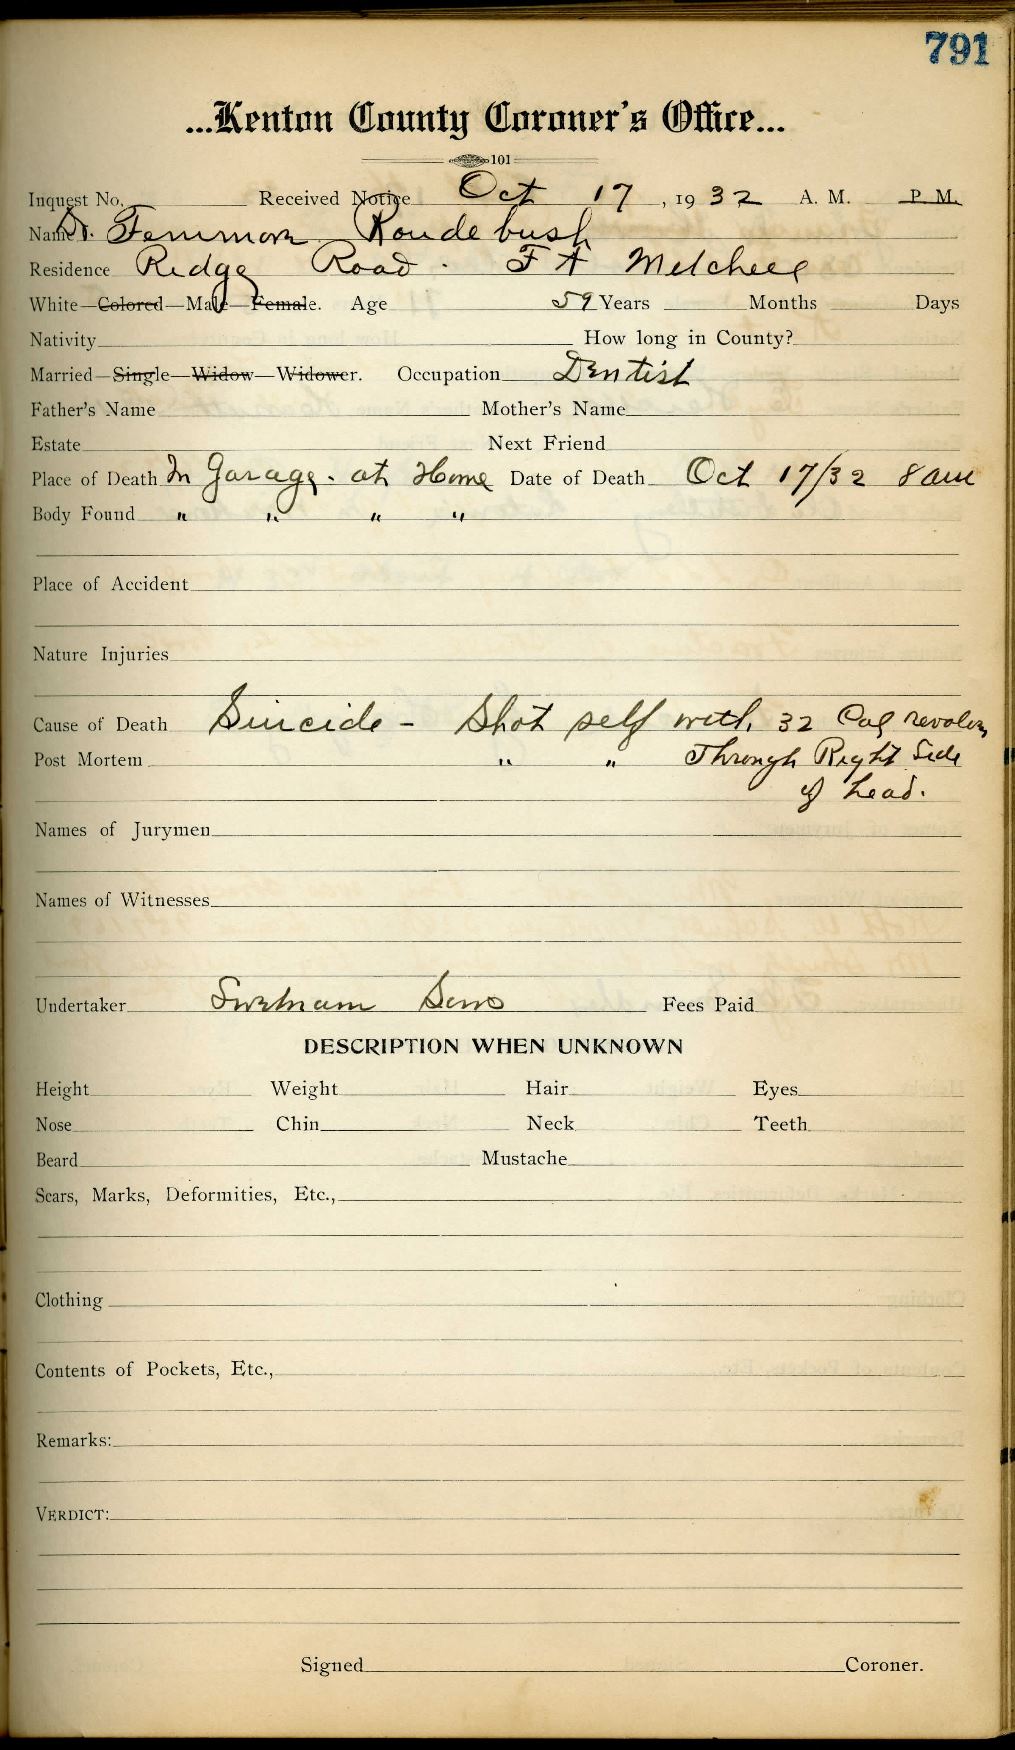 791
...Kenton County Coroner's Office...
101
Inquest No. Received Notice Oct 17, 1932 A. M. P. M.
Name Dr. Femmon Roudebush
Residence Ridge Road - Ft Mitchell
White—Colored—Male—Female. Age 59 Years Months Days
Nativity How long in County?
Married—Single—Widow—Widower. Occupation Dentist
Father's Name Mother's Name
Estate Next Friend
Place of Death In Garage - at Home Date of Death Oct 17/32 8 am
Body Found " " " "
Place of Accident
Nature Injuries
Cause of Death Suicide - Shot self with 32 Cal revolver
Post Mortem " " Through Right Side
of head.
Names of Jurymen
Names of Witnesses
Undertaker Swetnam Sons Fees Paid
DESCRIPTION WHEN UNKNOWN
Height Weight Hair Eyes
Nose Chin Neck Teeth
Beard Mustache
Scars, Marks, Deformities, Etc.,
Clothing
Contents of Pockets, Etc.,
Remarks:
VERDICT:
Signed Coroner.